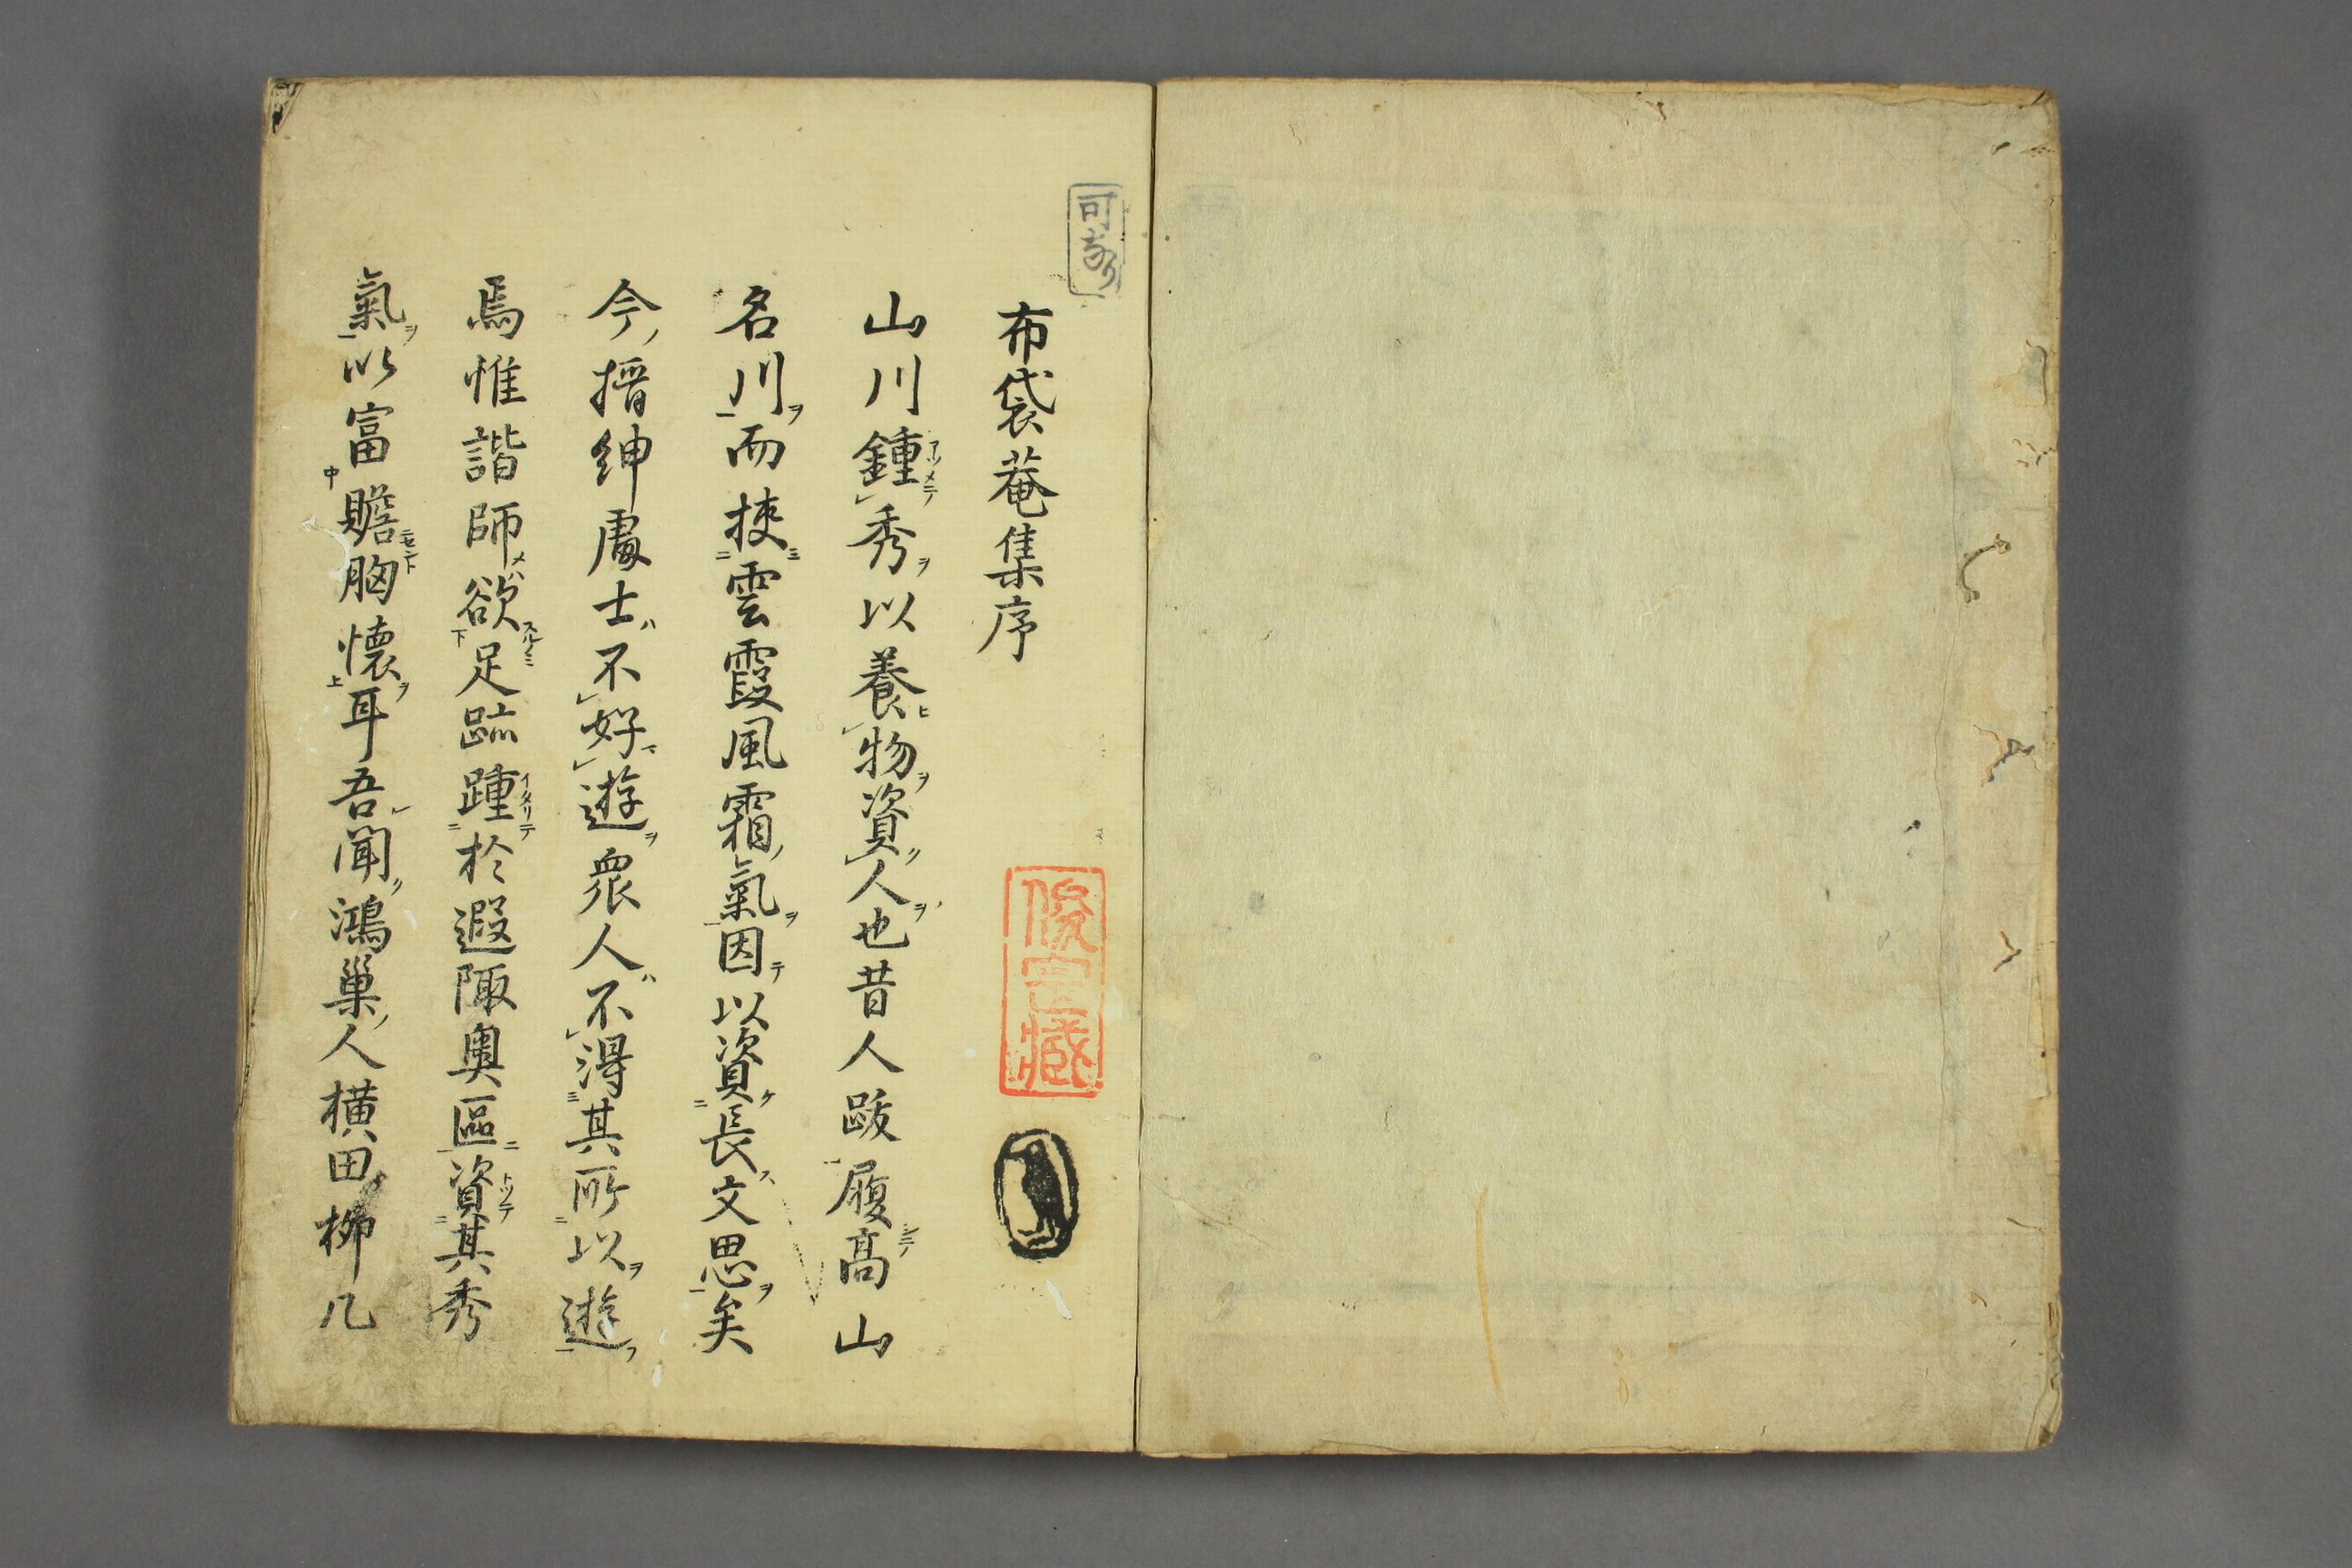 布袋菴集序
山川鍾秀以養物資人也昔人跋履高山
名川而挾雲霞風霜氣因以資長文思矣
今搢紳處士不好遊衆人不得其所以遊
焉惟諧師欲足跡踵於遐陬奧區資其秀
氣以富贍胸懷耳吾聞鴻巢人横田柳几